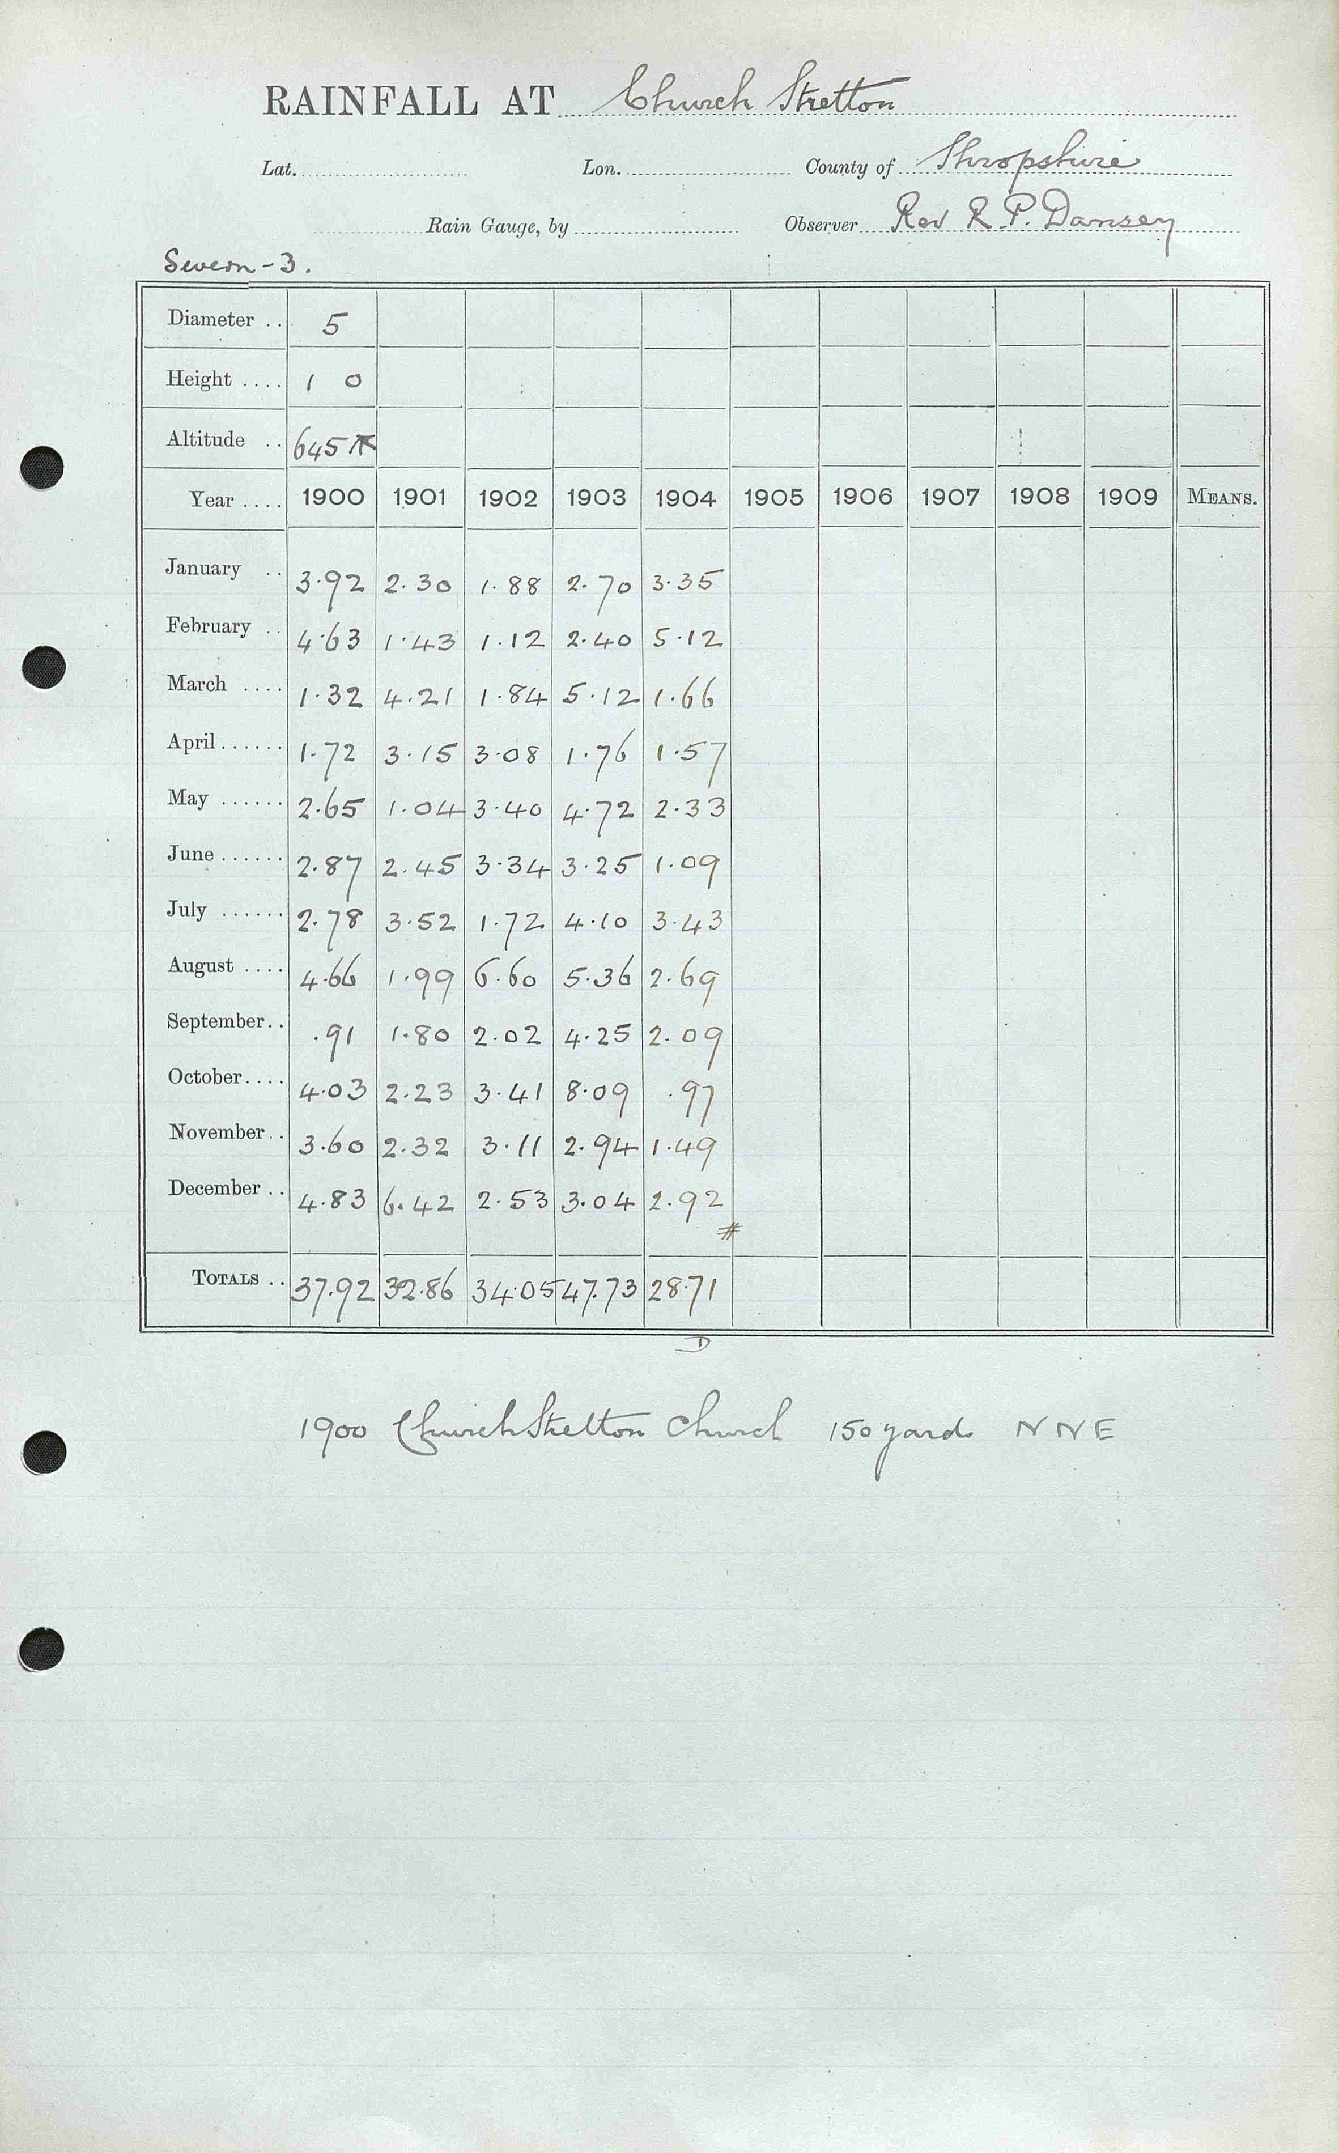 RAINFALL AT Church Stretton
Lat. Lon. County of Shropshire
Rain Gauge, by Observer Rev R. P. Damsey
Severn - 3.
Diameter .. 5
Height .... 1 0
Altitude .. 645 ft
Year .... 1900 1901 1902 1903 1904 1905 1906 1907 1908 1909 MEANS.
January .. 3.92 2.30 1.88 2.70 3.35
February .. 4.63 1.43 1.12 2.40 5.12
March .... 1.32 4.21 1.84 5.12 1.66
April ...... 1.72 3.15 3.08 1.76 1.57
May ...... 2.65 1.04 3.40 4.72 2.33
June ...... 2.87 2.45 3.34 3.25 1.09
July ...... 2.78 3.52 1.72 4.10 3.43
August .... 4.66 1.99 6.60 5.36 2.69
September.. .91 1.80 2.02 4.25 2.09
October.... 4.03 2.23 3.41 8.09 .97
November.. 3.60 2.32 3.11 2.94 1.49
December .. 4.83 6.42 2.53 3.04 2.92
#
TOTALS .. 37.92 32.86 34.05 47.73 28.71
D
1900 Church Stretton Church 150 yards N N E